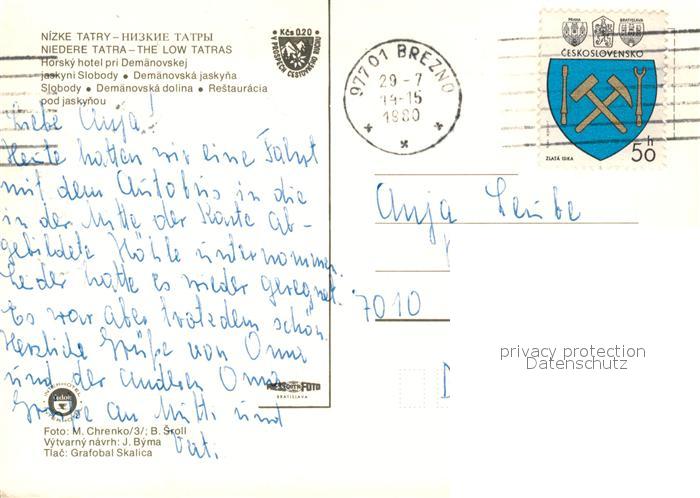 NÍZKE TATRY – НИЗКИЕ ТАТРЫ
NIEDERE TATRA – THE LOW TATRAS
Horský hotel pri Demänovskej
jaskyni Slobody • Demänovská jaskyňa
Slobody • Demänovská dolina • Reštaurácia
pod jaskyňou
Kčs 0.20
V PROSPECH CESTOVNÉHO RUCHU
977 01 BREZNO
29-7
14-15
1980
PRAHA
BRATISLAVA
ČESKOSLOVENSKO
ZLATÁ IDKA
50 h
Liebe Anja!
Heute hatten wir eine Fahrt
mit dem Autobus in die
in der Mitte der Karte ab-
gebildete Höhle unternommen.
Leider hatte es wieder geregnet.
Es war aber trotzdem schön.
Herzliche Grüße von Oma
und der anderen Oma
Grüße an Mutti und
Vati.
Anja Leube
7010
D
privacy protection
Datenschutz
INTERHOTEL
PRESSFOTO
BRATISLAVA
Foto: M. Chrenko/3/; B. Šroll
Výtvarný návrh: J. Býma
Tlač: Grafobal Skalica